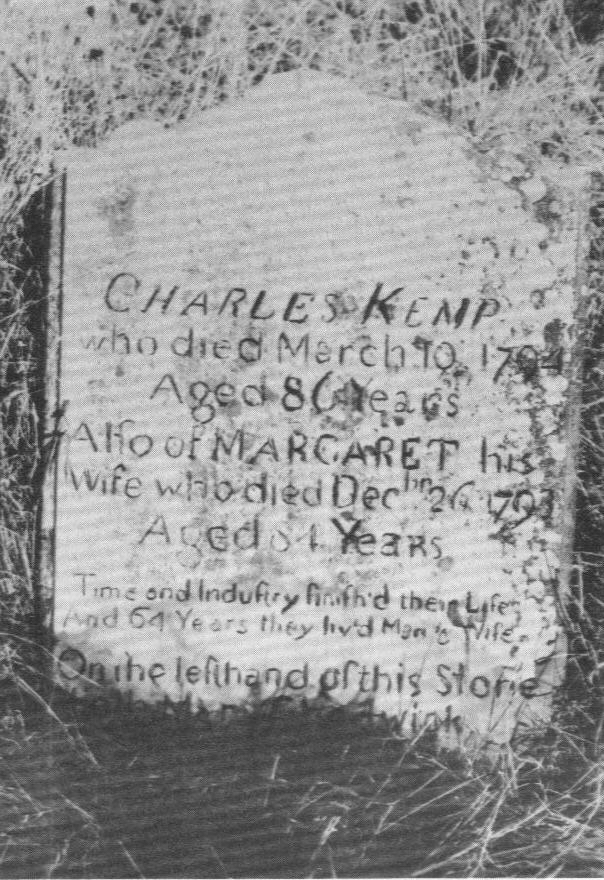 CHARLES KEMP
who died March 10, 1794
Aged 86 Years
Alſo of MARGARET his
Wife who died Decbr 26 1793
Aged 84 Years
Time and Induſtry finiſh'd their Life
And 64 Years they liv'd Man & Wife
On the lefthand of this Stone